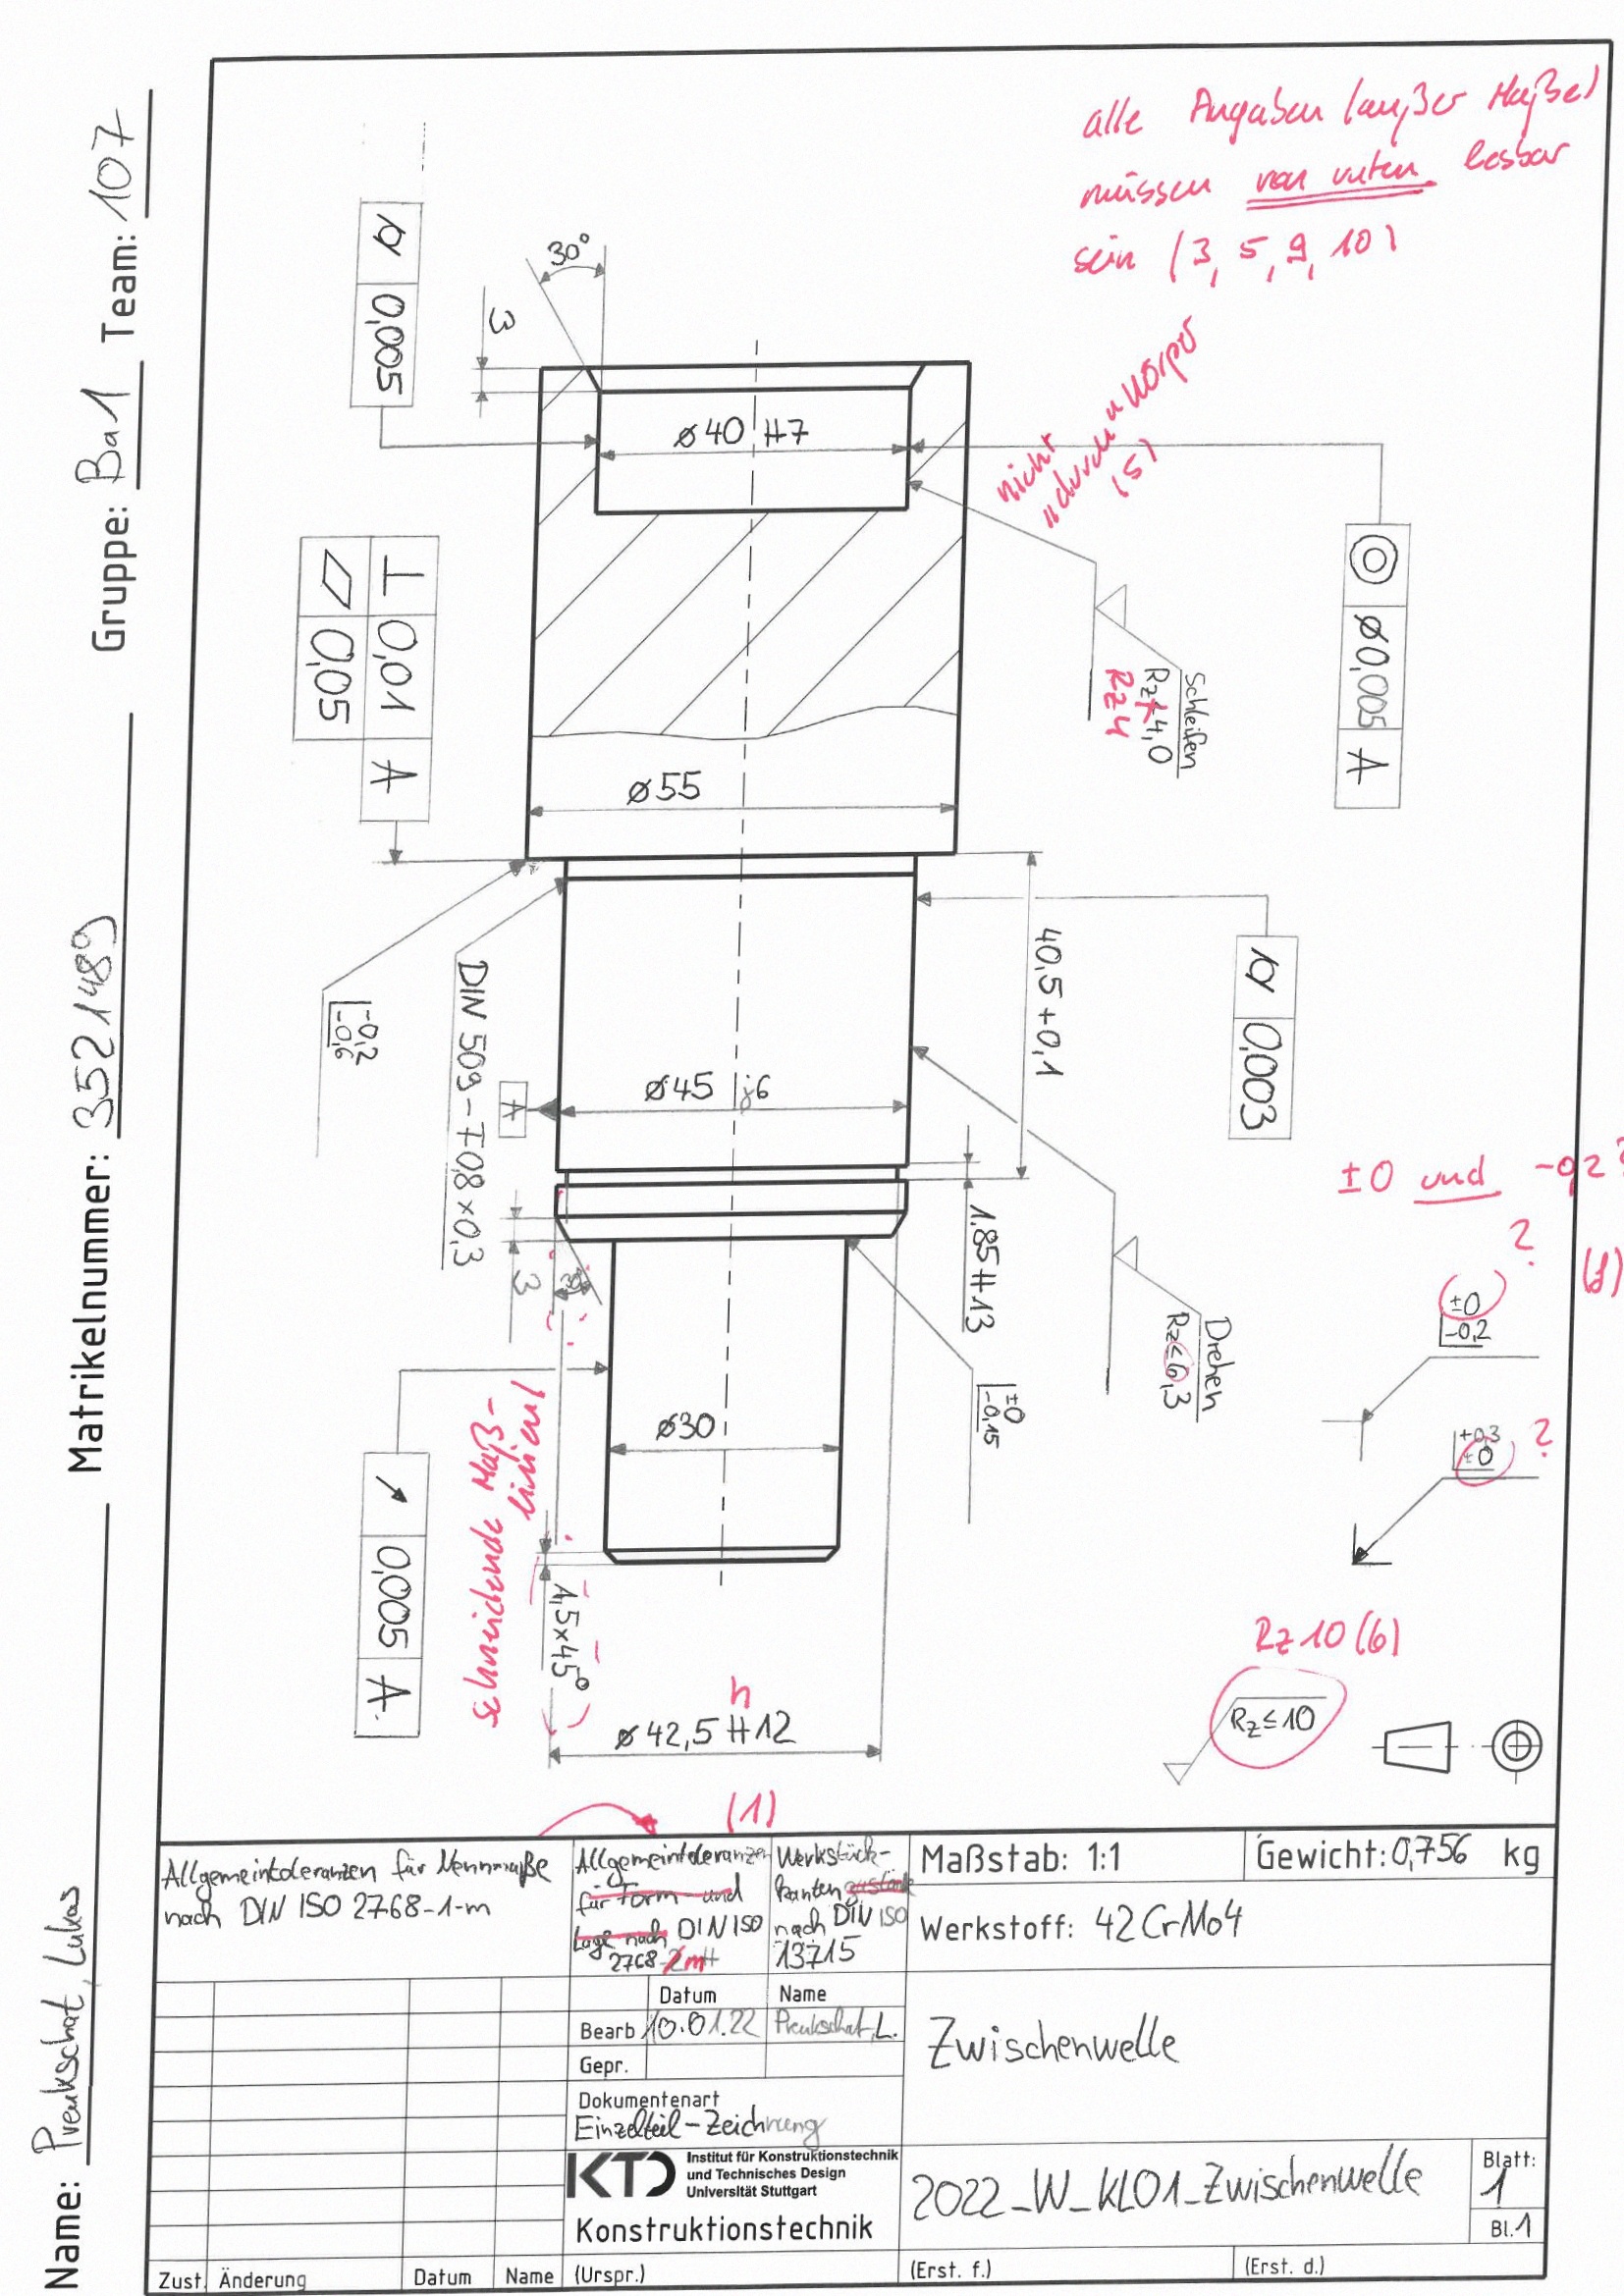 Name: Preukschat, Lukas Matrikelnummer: 3521489 Gruppe: Ba1 Team: 107
alle Angaben (außer Maße)
müssen von unten lesbar
sein (3, 5, 9, 10)
0,005
30°
3
⌀40 H7
nicht
"durch" Körper
(5)
◎ ⌀0,005 A
⊥ 0,01 A
▱ 0,05
Schleifen
Rz 4,0
Rz4
⌀55
-0,2
-0,6
DIN 509-F0,8×0,3
40,5 +0,1
0,003
⌀45 j6
A
1,85 H13
3
30°
Drehen
Rz≤6,3
±0
-0,15
±0 und -0,2?
?
(1)
±0
-0,2
+0,3
±0
?
⌀30
schneidende Maß-
linien!
0,005 A
1,5×45°
h
⌀42,5 H12
(1)
Rz10 (6)
Rz≤10
Allgemeintoleranzen für Nennmaße
nach DIN ISO 2768-1-m
Allgemeintoleranzen
für Form- und
Lage nach DIN ISO
2768-2mH
Werkstück-
kanten
nach DIN ISO
13715
Maßstab: 1:1
Gewicht: 0,756 kg
Werkstoff: 42CrMo4
Datum Name
Bearb 10.01.22 Preukschat, L.
Gepr.
Zwischenwelle
Dokumentenart
Einzelteil-Zeichnung
KTD Institut für Konstruktionstechnik
und Technisches Design
Universität Stuttgart
Konstruktionstechnik
2022_W_KL01_Zwischenwelle
Blatt:
1
Bl.1
Zust. Änderung Datum Name (Urspr.) (Erst. f.) (Erst. d.)